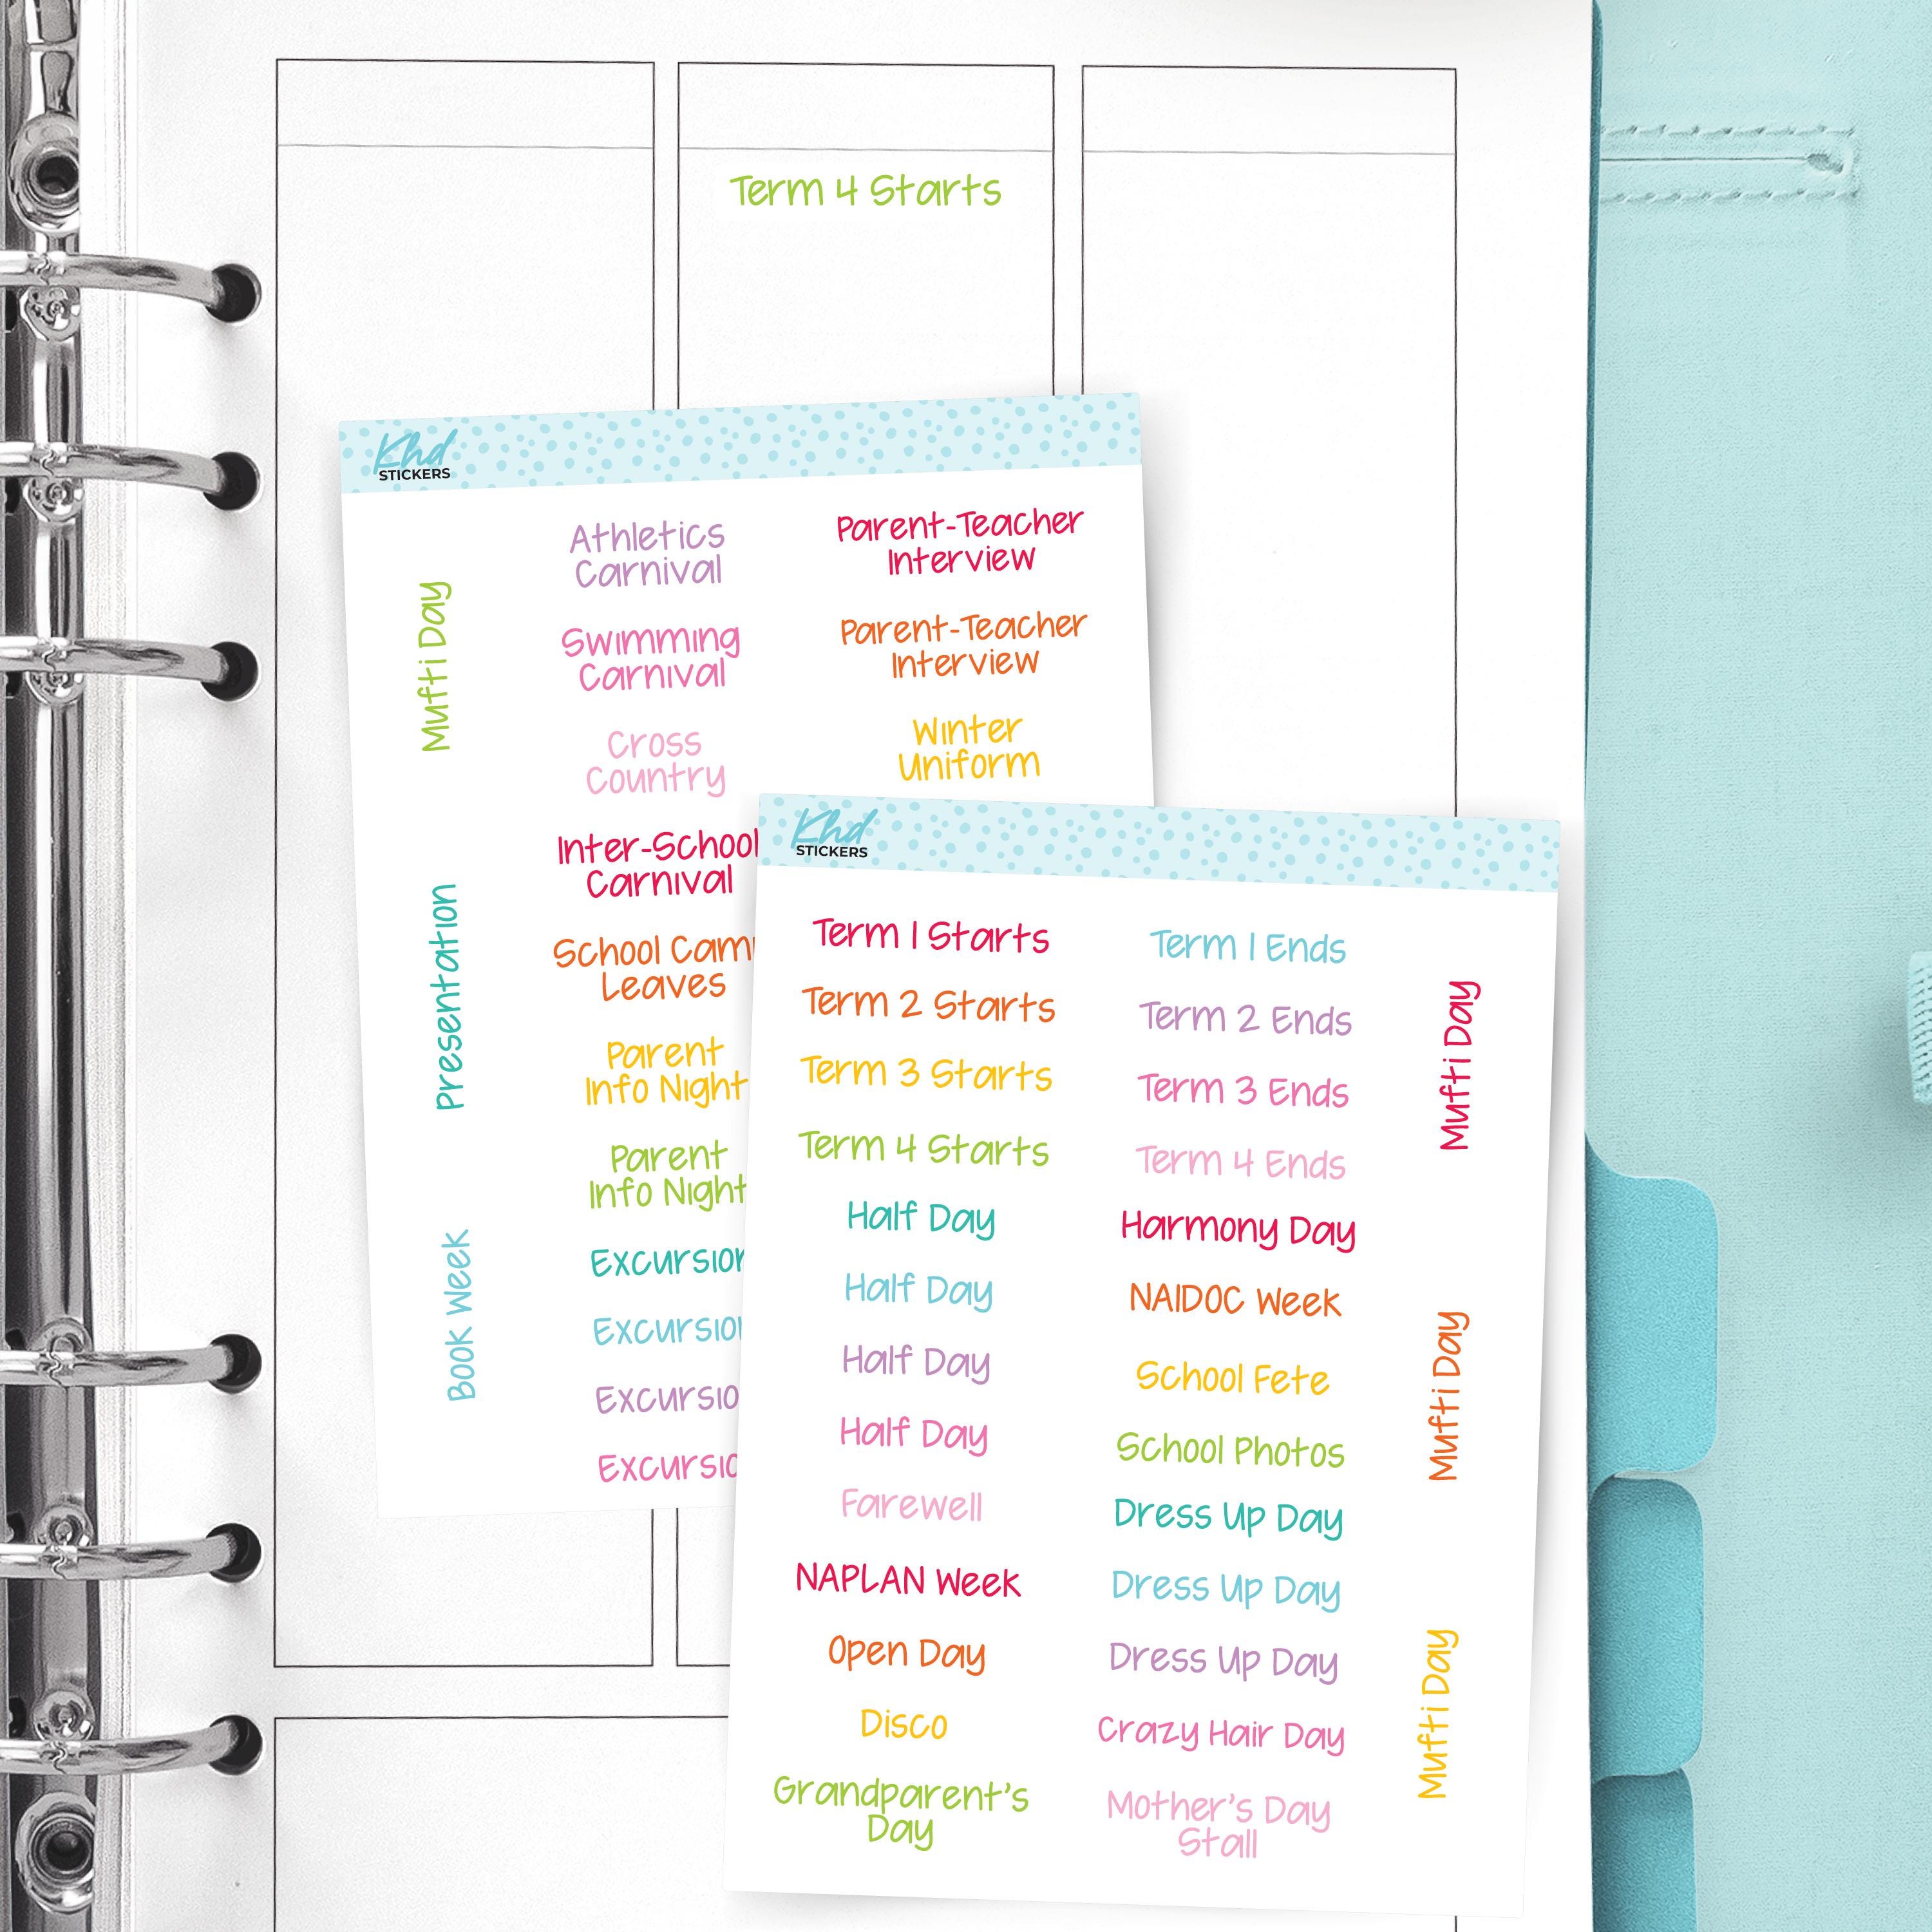 Term 4 Starts
Khd
STICKERS
Mufti Day
Presentation
Book Week
Athletics
Carnival
Swimming
Carnival
Cross
Country
Inter-School
Carnival
School
Leaves
Parent
Info Night
Parent
Info Night
Excursion
Parent-Teacher
Interview
Parent-Teacher
Interview
Winter
Uniform
Khd
STICKERS
Term 1 Starts
Term 2 Starts
Term 3 Starts
Term 4 Starts
Half Day
Half Day
Half Day
Half Day
Farewell
NAPLAN Week
Open Day
Disco
Grandparent's
Day
Term 1 Ends
Term 2 Ends
Term 3 Ends
Term 4 Ends
Harmony Day
NAIDOC Week
School Fete
School Photos
Dress Up Day
Dress Up Day
Dress Up Day
Crazy Hair Day
Mother's Day
Stall
Mufti Day
Mufti Day
Mufti Day